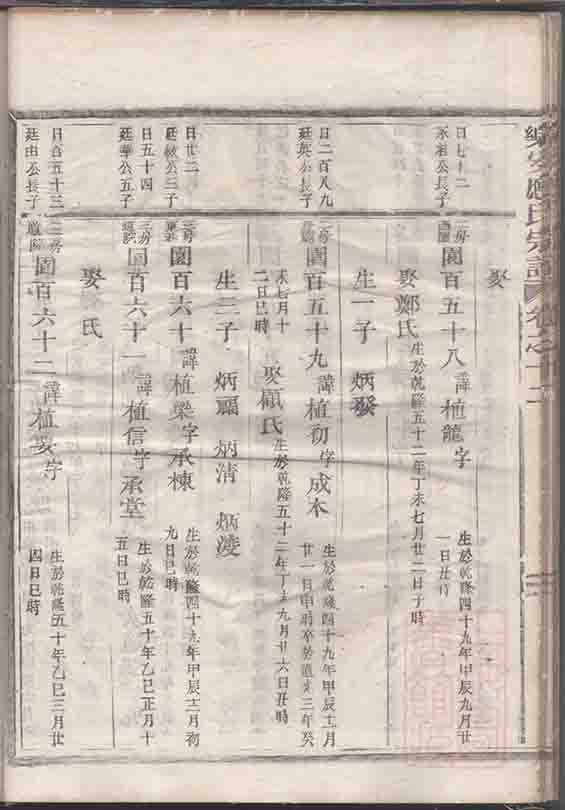 應氏宗譜 卷之十二
娶
日七十二
永祖公長子
三房 園百五十八 諱植龍字 生於乾隆四十九年甲辰九月廿
一日丑時
娶鄭氏 生於乾隆五十二年丁未七月廿二日子時
生一子 炳發
日二百八九
廷英公長子
三房 園百五十九 諱植初字成本 生於乾隆四十九年甲辰十二月
廿一日申時卒於道光三年癸
未七月十
二日巳時
娶顧氏 生於乾隆五十二年丁未九月廿六日丑時
生三子 炳福 炳清 炳淩
日廿二
廷敏公三子
三房 園百六十 諱植梁字承棟 生於乾隆四十九年甲辰十二月初
九日巳時
日五十四
廷華公五子
三房 園百六十一 諱植信字承堂 生於乾隆五十年乙巳正月十
五日巳時
娶 氏
日百五十三
廷由公長子
三房 園百六十二 諱植晏字 生於乾隆五十年乙巳三月廿
四日巳時